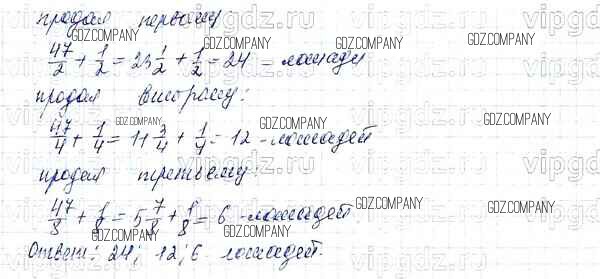 продал первому
47/2 + 1/2 = 23 1/2 + 1/2 = 24 - лошади
продал второму:
47/4 + 1/4 = 11 3/4 + 1/4 = 12 - лошадей
продал третьему:
47/8 + 1/8 = 5 7/8 + 1/8 = 6 - лошадей
Ответ: 24; 12; 6 лошадей.
GDZ.COMPANY
vipgdz